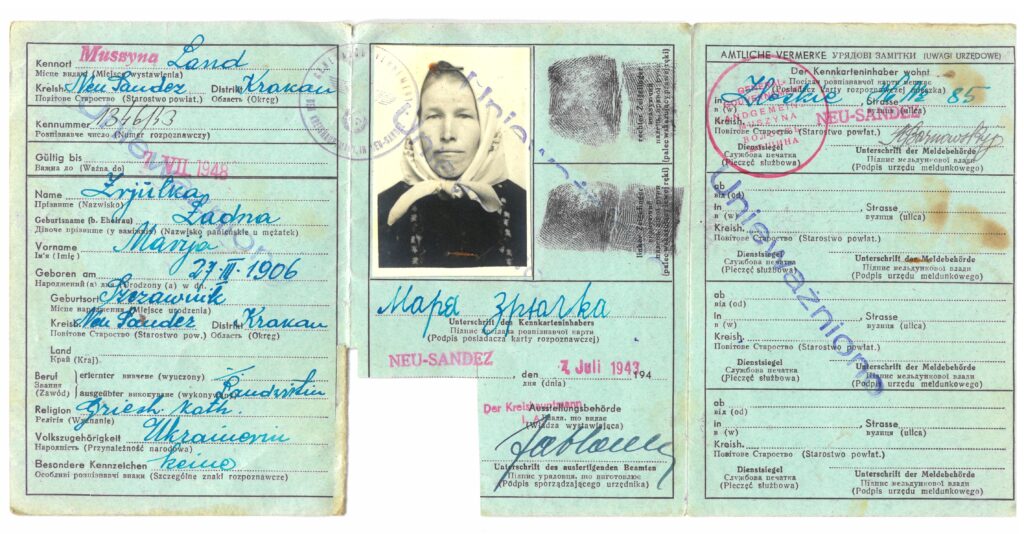 Muszyna Land
Kennort
Місце видачі (Miejsce wystawienia)
Kreish. Neu Sandez Distrikt Krakau
Повітове Староство (Starostwo powiat.) Область (Okręg)
Kennummer 1346/43
Розпізнавче число (Numer rozpoznawczy)
Gültig bis 7. VII. 1948
Важна до (Ważna do)
Name Zrjulka
Прізвище (Nazwisko)
Geburtsname (b. Ehefrau) Ladna
Дівоче прізвище (у заміжніх) (Nazwisko panieńskie u mężatek)
Vorname Marija
Ім'я (Imię)
Geboren am 27 III. 1906
Народжений(а) дня (Urodzony (a) w dn.)
Geburtsort Szczawnik
Місце народження (Miejsce urodzenia)
Kreish. Neu Sandez Distrikt Krakau
Повітове Староство (Starostwo pow.) Область (Okręg)
Land
Край (Kraj)
Beruf erlernter (wyuczony)
Звання
(Zawód) ausgeübter виконуваний (wykonywany) Landwirtin
Religion Griech. kath.
Релігія (Wyznanie)
Volkszugehörigkeit Ukrainerin
Народність (Przynależność narodowa)
Besondere Kennzeichen keine
Особливі розпізнавчі знаки (Szczególne znaki rozpoznawcze)
Unieważniono
Unieważniono
rechter Zeigefinger
linker Zeigefinger
Маря Зрюлка
Unterschrift des Kennkarteninhabers
Підпис посідача розпізнавчої карти
(Podpis posiadacza karty rozpoznawczej)
NEU-SANDEZ
, den 7. Juli 1943 194
дня (dnia)
Der Kreishauptmann
Ausstellungsbehörde
(Władza wystawiająca)
Unterschrift des ausfertigenden Beamten
Підпис урядовця, що виготовлює
(Podpis sporządzającego urzędnika)
AMTLICHE VERMERKE УРЯДОВІ ЗАМІТКИ (UWAGI URZĘDOWE)
Der Kennkarteninhaber wohnt
Посідач розпізнавчої карти мешкає
(Posiadacz karty rozpoznawczej mieszka)
in Złockie, Strasse 85
в (w) вулиця (ulica)
Kreish. NEU-SANDEZ
Повітове Староство (Starostwo powiat.)
Dienstsiegel Unterschrift der Meldebehörde
Службова печатка Підпис мельдункової влади
(Pieczęć służbowa) (Podpis urzędu meldunkowego)
LANDGEMEINDE
MUSZYNA
Unieważniono
ab
від (od)
in , Strasse
в (w) вулиця (ulica)
Kreish.
Повітове Староство (Starostwo powiat.)
Dienstsiegel Unterschrift der Meldebehörde
Службова печатка Підпис мельдункової влади
(Pieczęć służbowa) (Podpis urzędu meldunkowego)
ab
від (od)
in , Strasse
в (w) вулиця (ulica)
Kreish.
Повітове Староство (Starostwo powiat.)
Dienstsiegel Unterschrift der Meldebehörde
Службова печатка Підпис мельдункової влади
(Pieczęć służbowa) (Podpis urzędu meldunkowego)
ab
від (od)
in , Strasse
в (w) вулиця (ulica)
Kreish.
Повітове Староство (Starostwo powiat.)
Dienstsiegel Unterschrift der Meldebehörde
Службова печатка Підпис мельдункової влади
(Pieczęć służbowa) (Podpis urzędu meldunkowego)